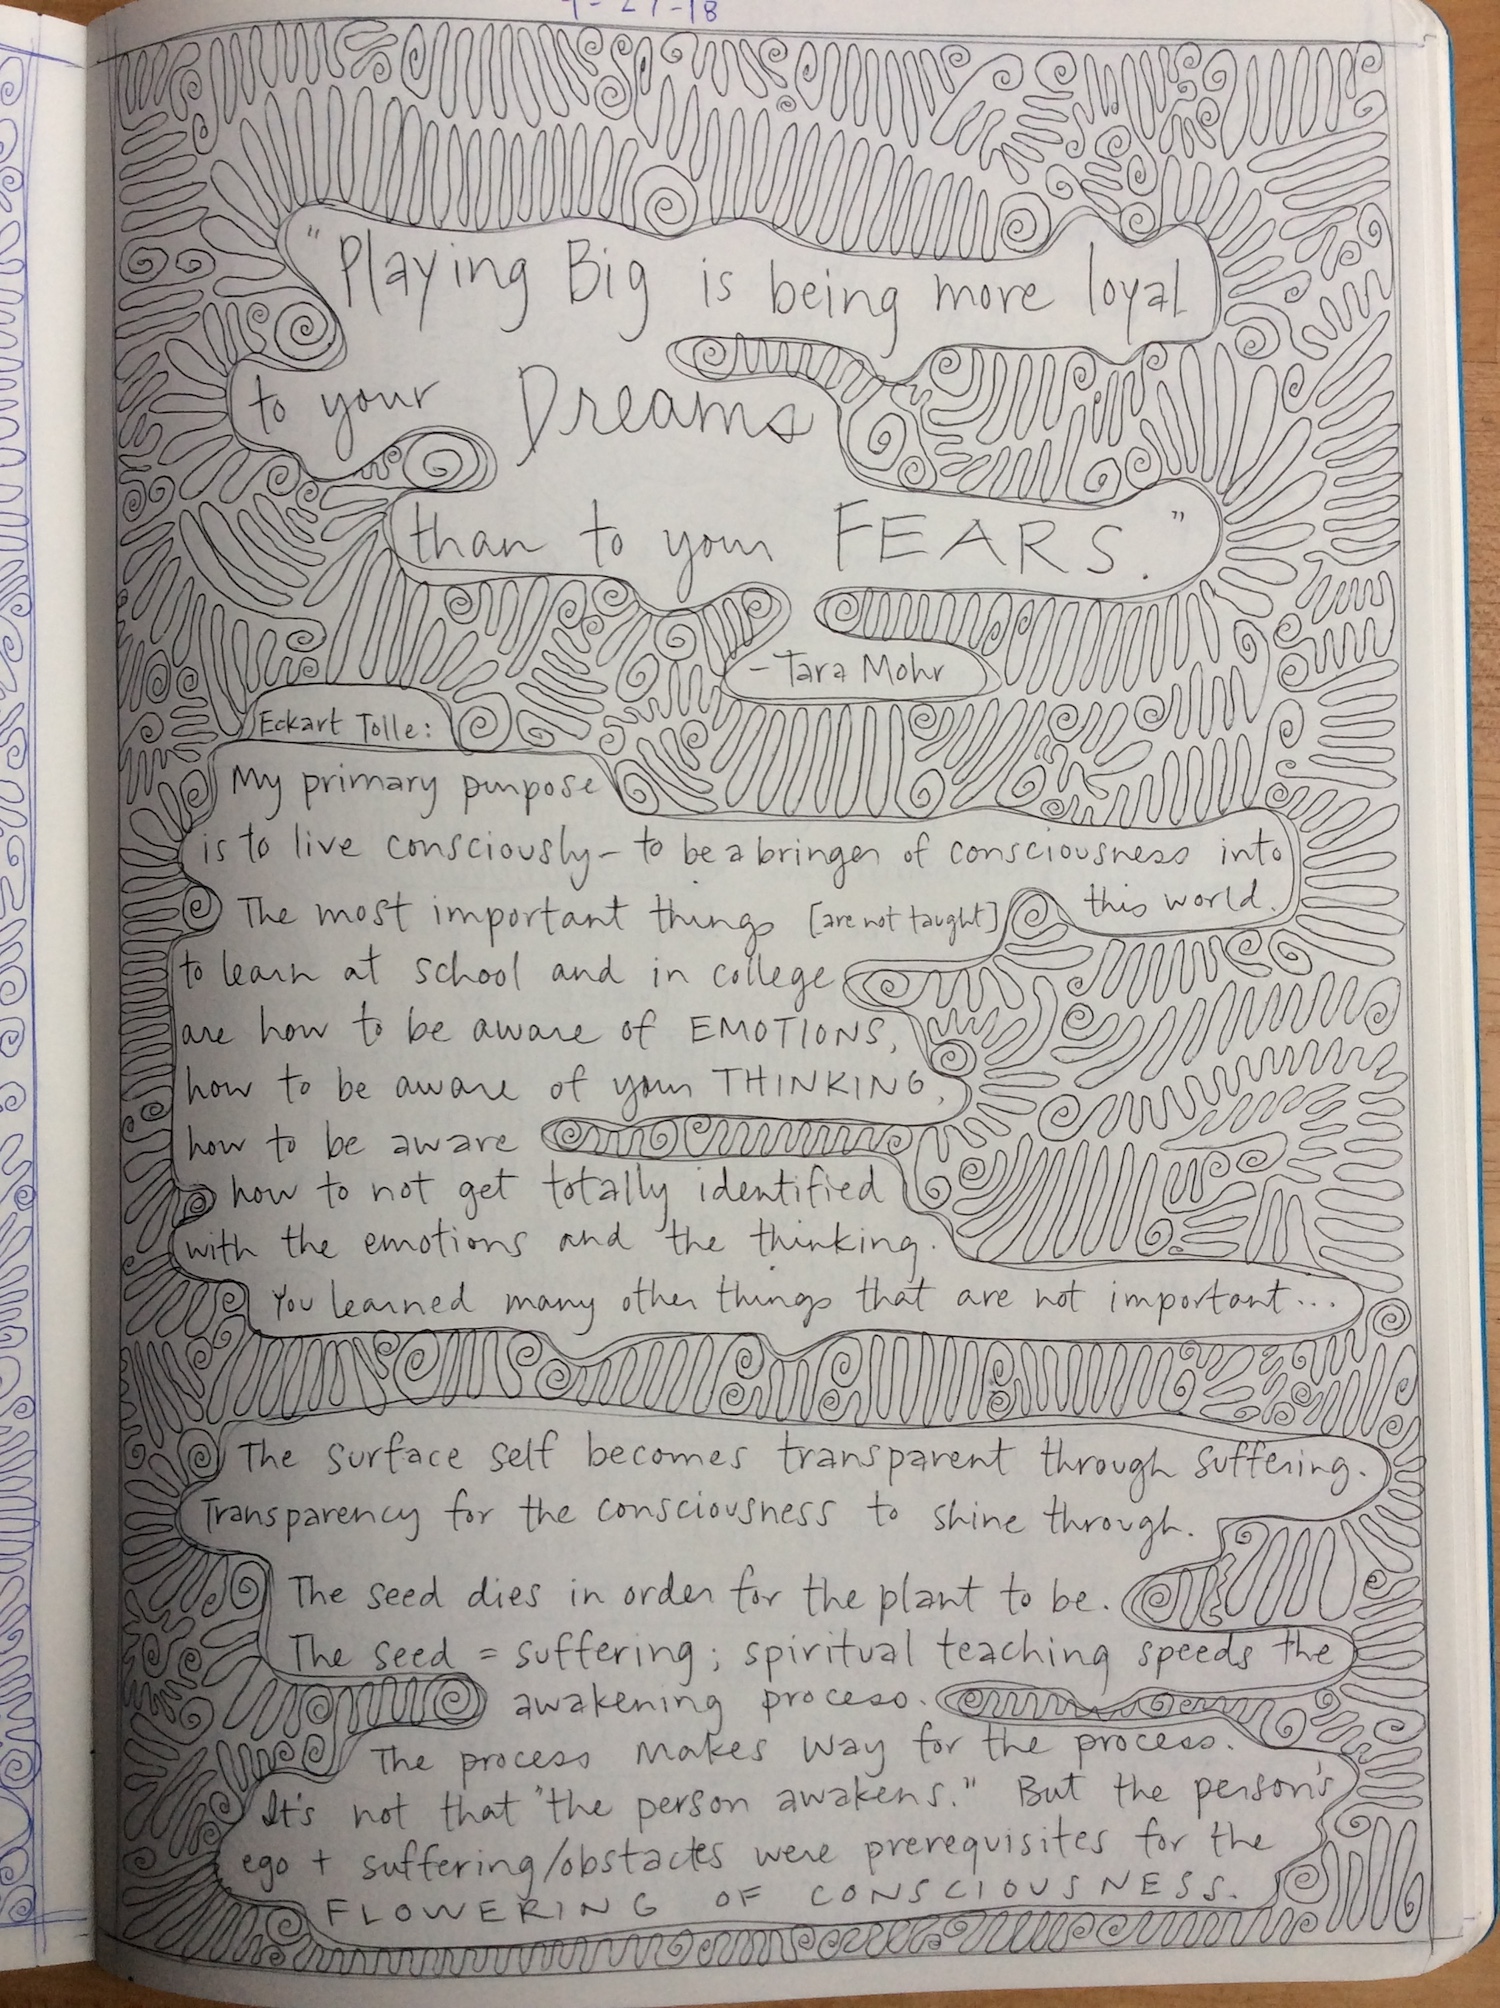 "Playing Big is being more loyal
to your Dreams
than to your FEARS."
- Tara Mohr
Eckart Tolle:
My primary purpose
is to live consciously - to be a bringer of consciousness into
this world.
The most important things [are not taught]
to learn at school and in college
are how to be aware of EMOTIONS,
how to be aware of your THINKING,
how to be aware
how to not get totally identified
with the emotions and the thinking.
You learned many other things that are not important...
The surface self becomes transparent through suffering.
Transparency for the consciousness to shine through.
The seed dies in order for the plant to be.
The seed = suffering; spiritual teaching speeds the
awakening process.
The process makes way for the process.
It's not that "the person awakens." But the person's
ego + suffering/obstacles were prerequisites for the
FLOWERING OF CONSCIOUSNESS.